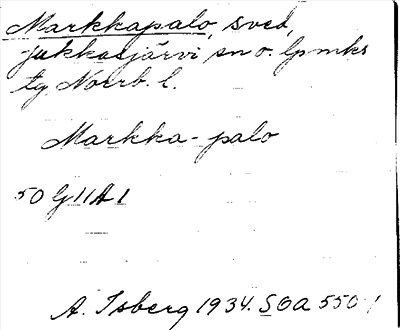 Markkapalo, sved,
Jukkasjärvi sn o. lpmks
tg, Norrb. l.
Markka-palo
50 G 11 A 1
A. Isberg 1934. SOA 550